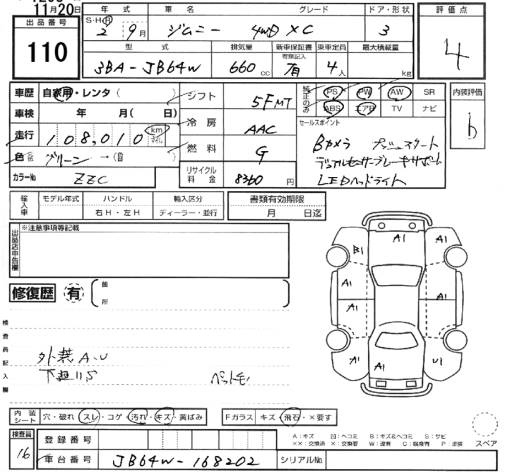 11月20日
出品番号
110
年式
車名
グレード
ドア・形状
評価点
S・H・R
2 9月
ジムニー 4WD XC
3
4
型式
排気量
新車保証書
有無記入
乗車定員
最大積載量
3BA-JB64W
660cc
有
4人
kg
車歴
自家用・レンタ( )
シフト
5F MT
純正のみ
PS PW AW SR
ABS エアB TV ナビ
内装評価
b
車検
年 月( 日)
冷房
AAC
セールスポイント
走行
108,010
km
Bカメラ プッシュスタート
デュアルセンサーブレーキサポート
LEDヘッドライト
色
グリーン
燃料
G
カラーNo
ZZC
リサイクル料金
8360円
輸入車
モデル年式
ハンドル
右H・左H
輸入区分
ディーラー・並行
書類有効期限
月 日迄
出品店申告欄
※注意事項等記載
修復歴
有
箇所
検査員記入欄
外装A.U
下廻りS
ペットモ
A1 A1
B1
A1 A1
A1 A1
A1
U1
内装シート
穴・破れ スレ・コゲ 汚れ・キズ・黄ばみ
Fガラス キズ・飛石・×要す
A:キズ
スペア
検査員
16
登録番号
車台番号
JB64W-168202
シリアルNo.